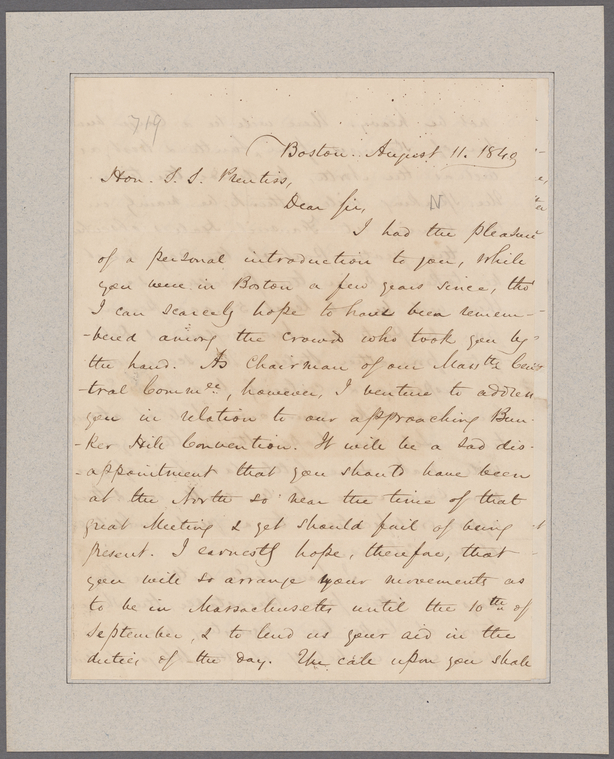 719
Boston. August 11. 1840
Hon. S. S. Prentiss,
Dear Sir, N
I had the pleasure
of a personal introduction to you, while
you were in Boston a few years since, tho'
I can scarcely hope to have been remem-
-bered among the crowd who took you by
the hand. As Chairman of our Masstts Cen-
-tral Commee, however, I venture to address
you in relation to our approaching Bun-
-ker Hill Convention. It will be a sad dis-
-appointment that you should have been
at the North so near the time of that
great Meeting & yet should fail of being
present. I earnestly hope, therefore, that
you will so arrange your movements as
to be in Massachusetts until the 10th of
September, & to lend us your aid in the
duties of the day. The call upon you shall